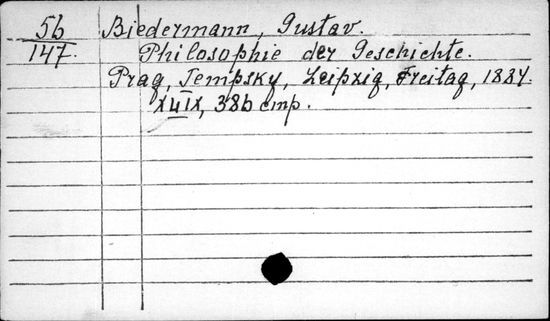 56 Biedermann, Gustav.
147. Philosophie der Geschichte.
Prag, Tempsky, Leipzig, Freitag, 1884.
XLIIX, 386 стр.